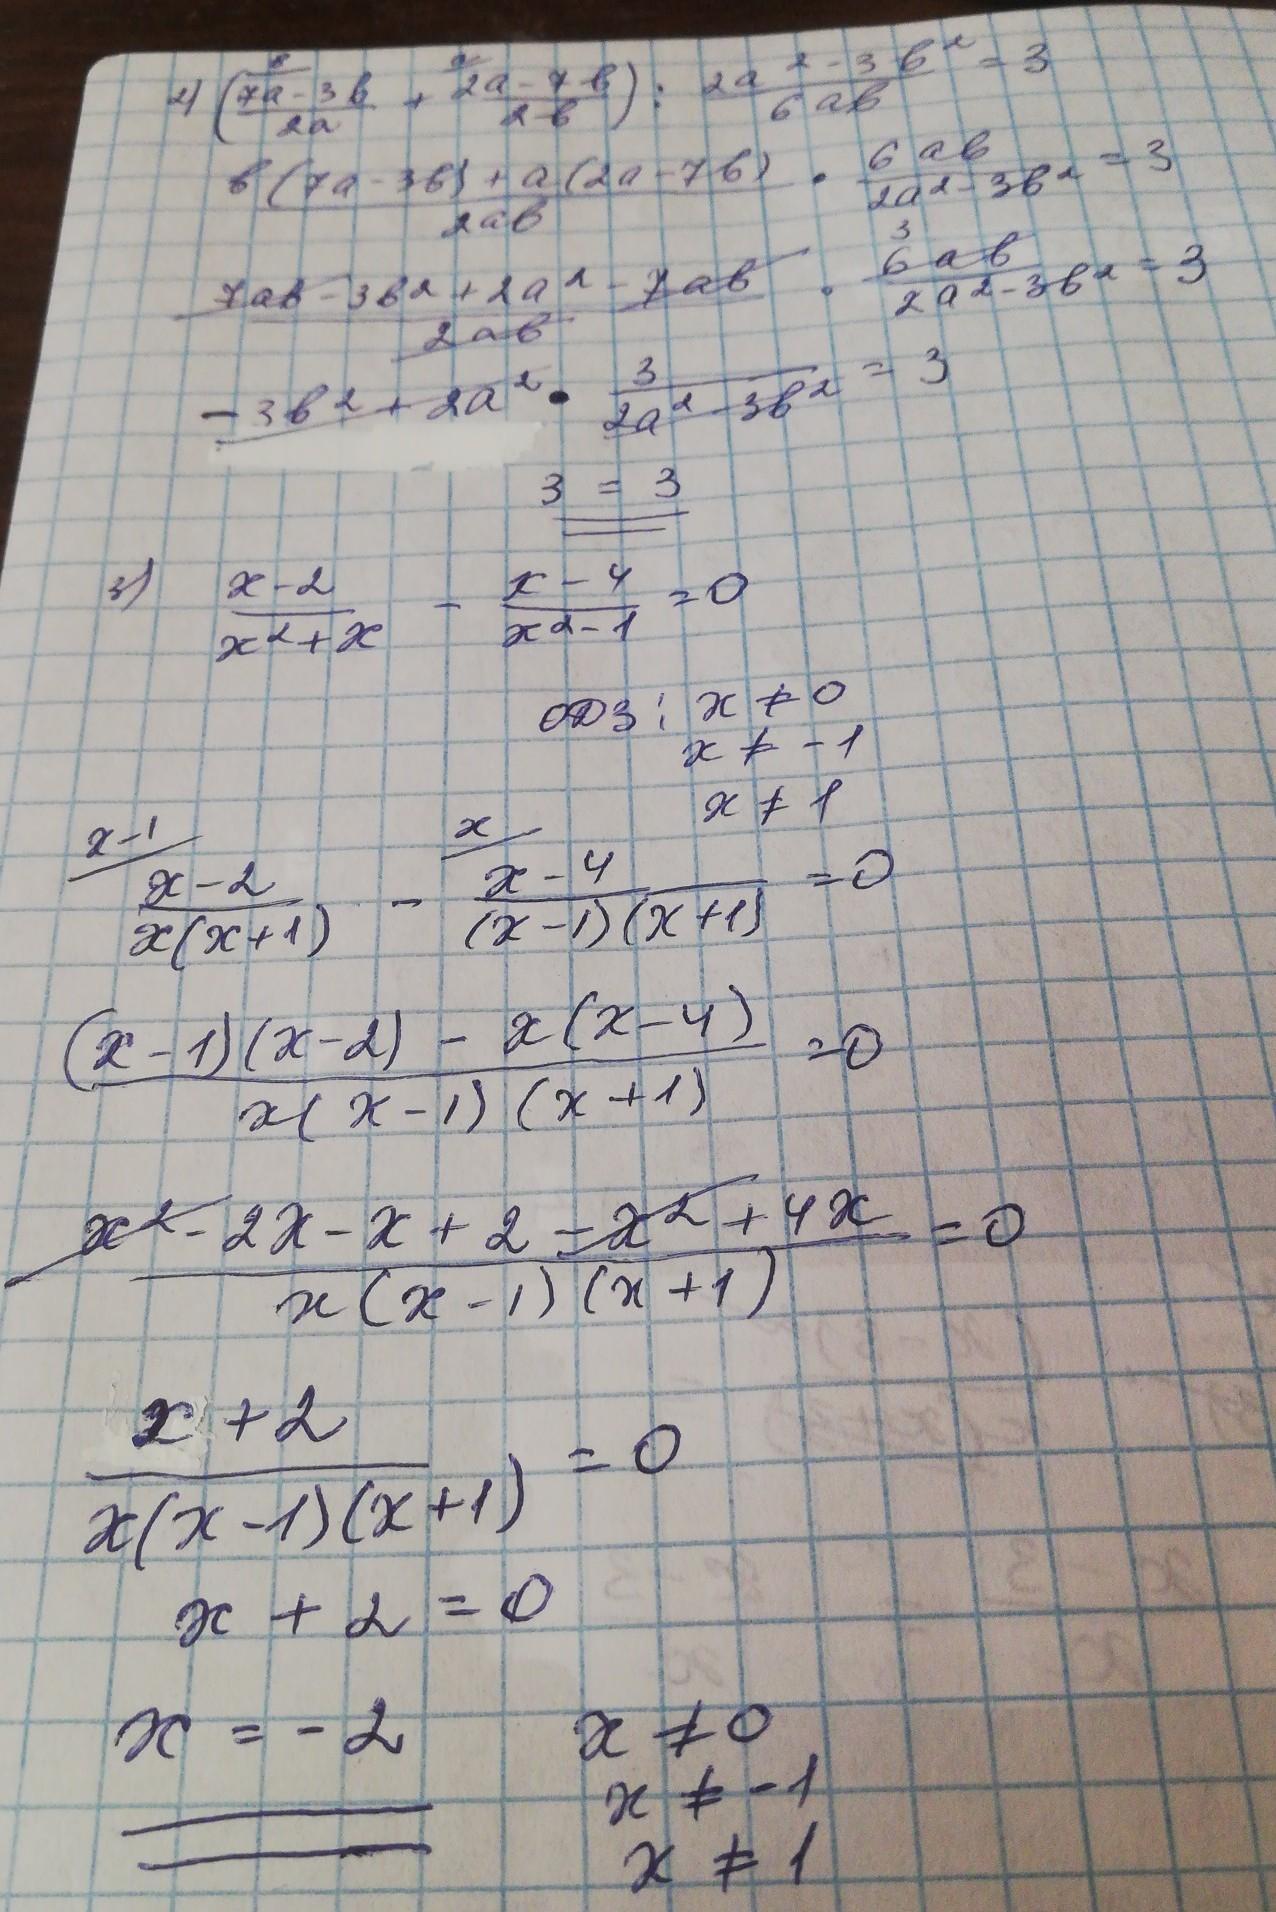 2) ((7a-3b)/2a + (2a-7b)/2b) : (2a²-3b²)/6ab = 3
(b(7a-3b)+a(2a-7b))/2ab · 6ab/(2a²-3b²) = 3
(7ab-3b²+2a²-7ab)/2ab · 6ab/(2a²-3b²) = 3
-3b²+2a² · 3/(2a²-3b²) = 3
3 = 3
3) (x-2)/(x²+x) - (x-4)/(x²-1) = 0
ОДЗ: x ≠ 0
x ≠ -1
x ≠ 1
x-1 x
(x-2)/(x(x+1)) - (x-4)/((x-1)(x+1)) = 0
((x-1)(x-2) - x(x-4))/(x(x-1)(x+1)) = 0
(x²-2x-x+2-x²+4x)/(x(x-1)(x+1)) = 0
(x+2)/(x(x-1)(x+1)) = 0
x+2=0
x = -2 x ≠ 0
x ≠ -1
x ≠ 1